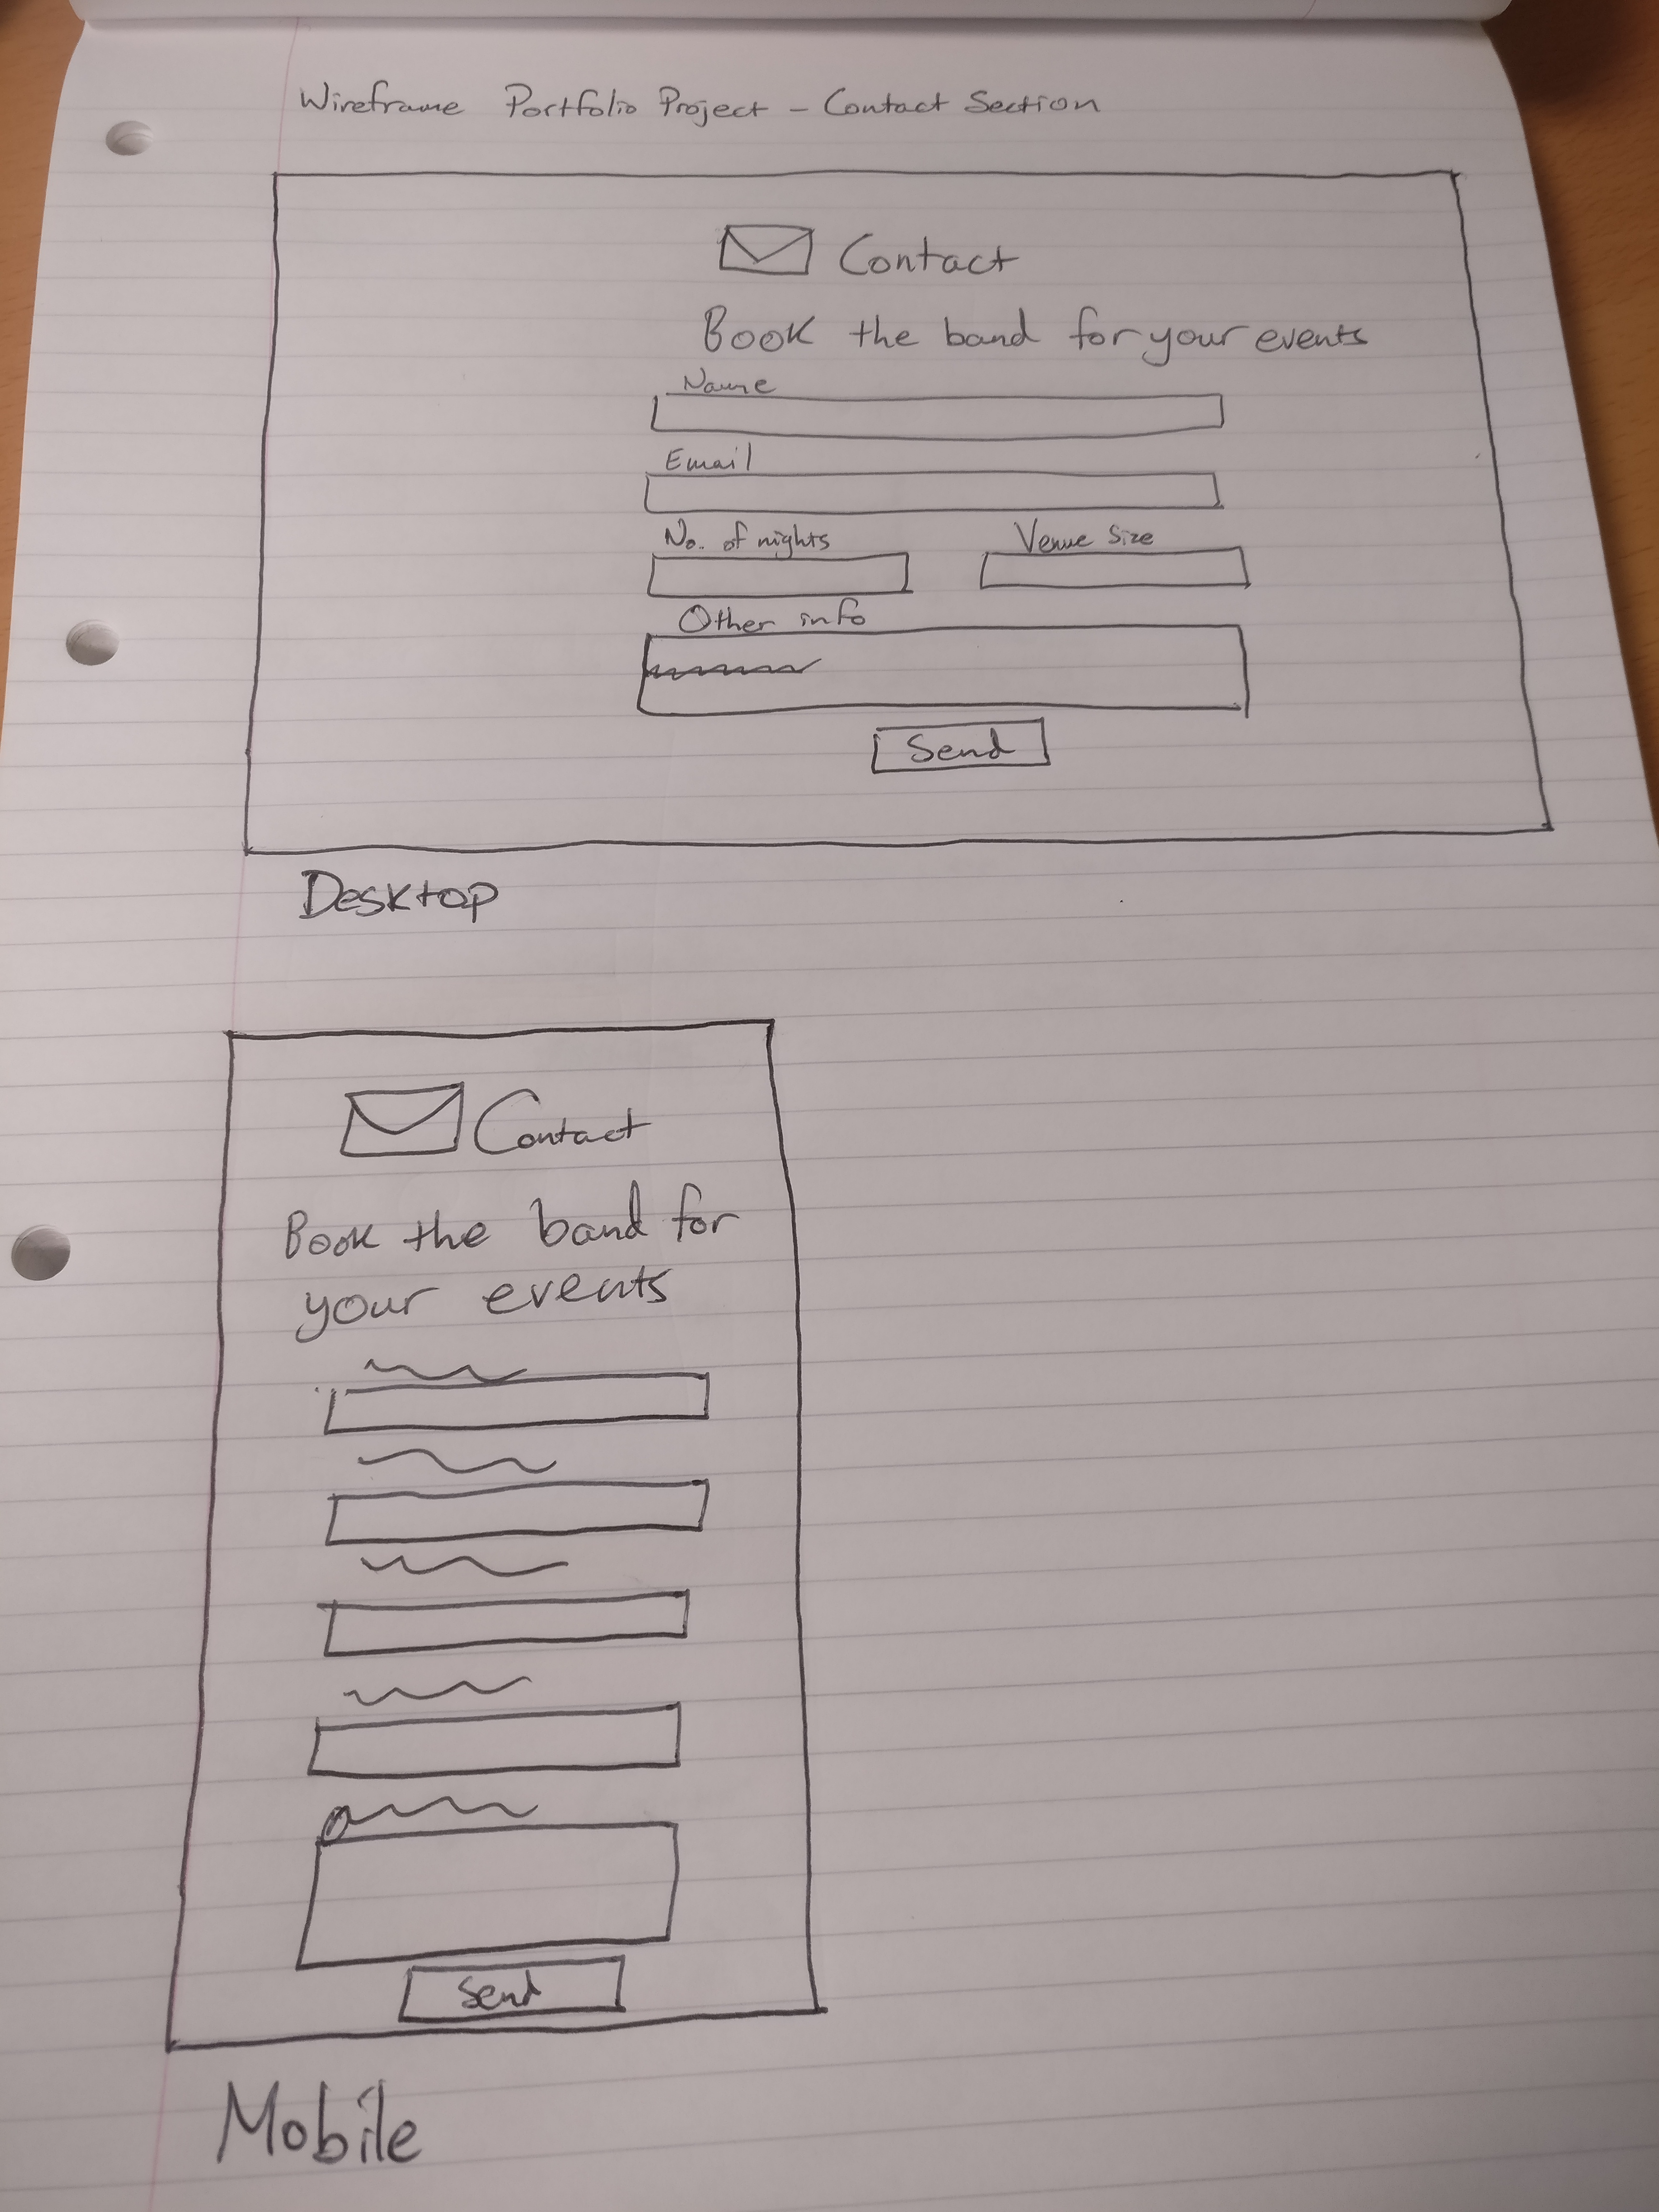 Wireframe Portfolio Project - Contact Section
Contact
Book the band for your events
Name
Email
No. of nights Venue Size
Other info
Send
Desktop
Contact
Book the band for
your events
Send
Mobile